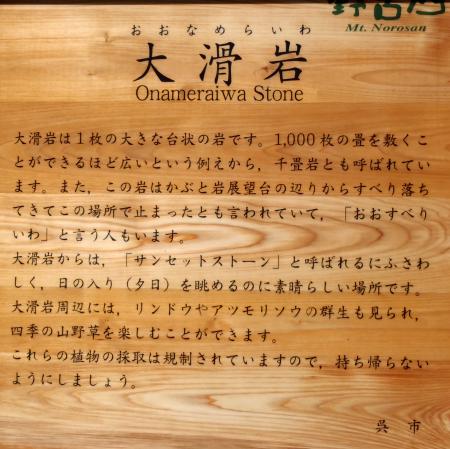 野呂山
Mt. Norosan
おおなめらいわ
大滑岩
Onameraiwa Stone
大滑岩は1枚の大きな台状の岩です。1,000枚の畳を敷くこ
とができるほど広いという例えから，千畳岩とも呼ばれてい
ます。また，この岩はかぶと岩展望台の辺りからすべり落ち
てきてこの場所で止まったとも言われていて，「おおすべり
いわ」と言う人もいます。
大滑岩からは，「サンセットストーン」と呼ばれるにふさわ
しく，日の入り（夕日）を眺めるのに素晴らしい場所です。
大滑岩周辺には，リンドウやアツモリソウの群生も見られ，
四季の山野草を楽しむことができます。
これらの植物の採取は規制されていますので，持ち帰らない
ようにしましょう。
呉市